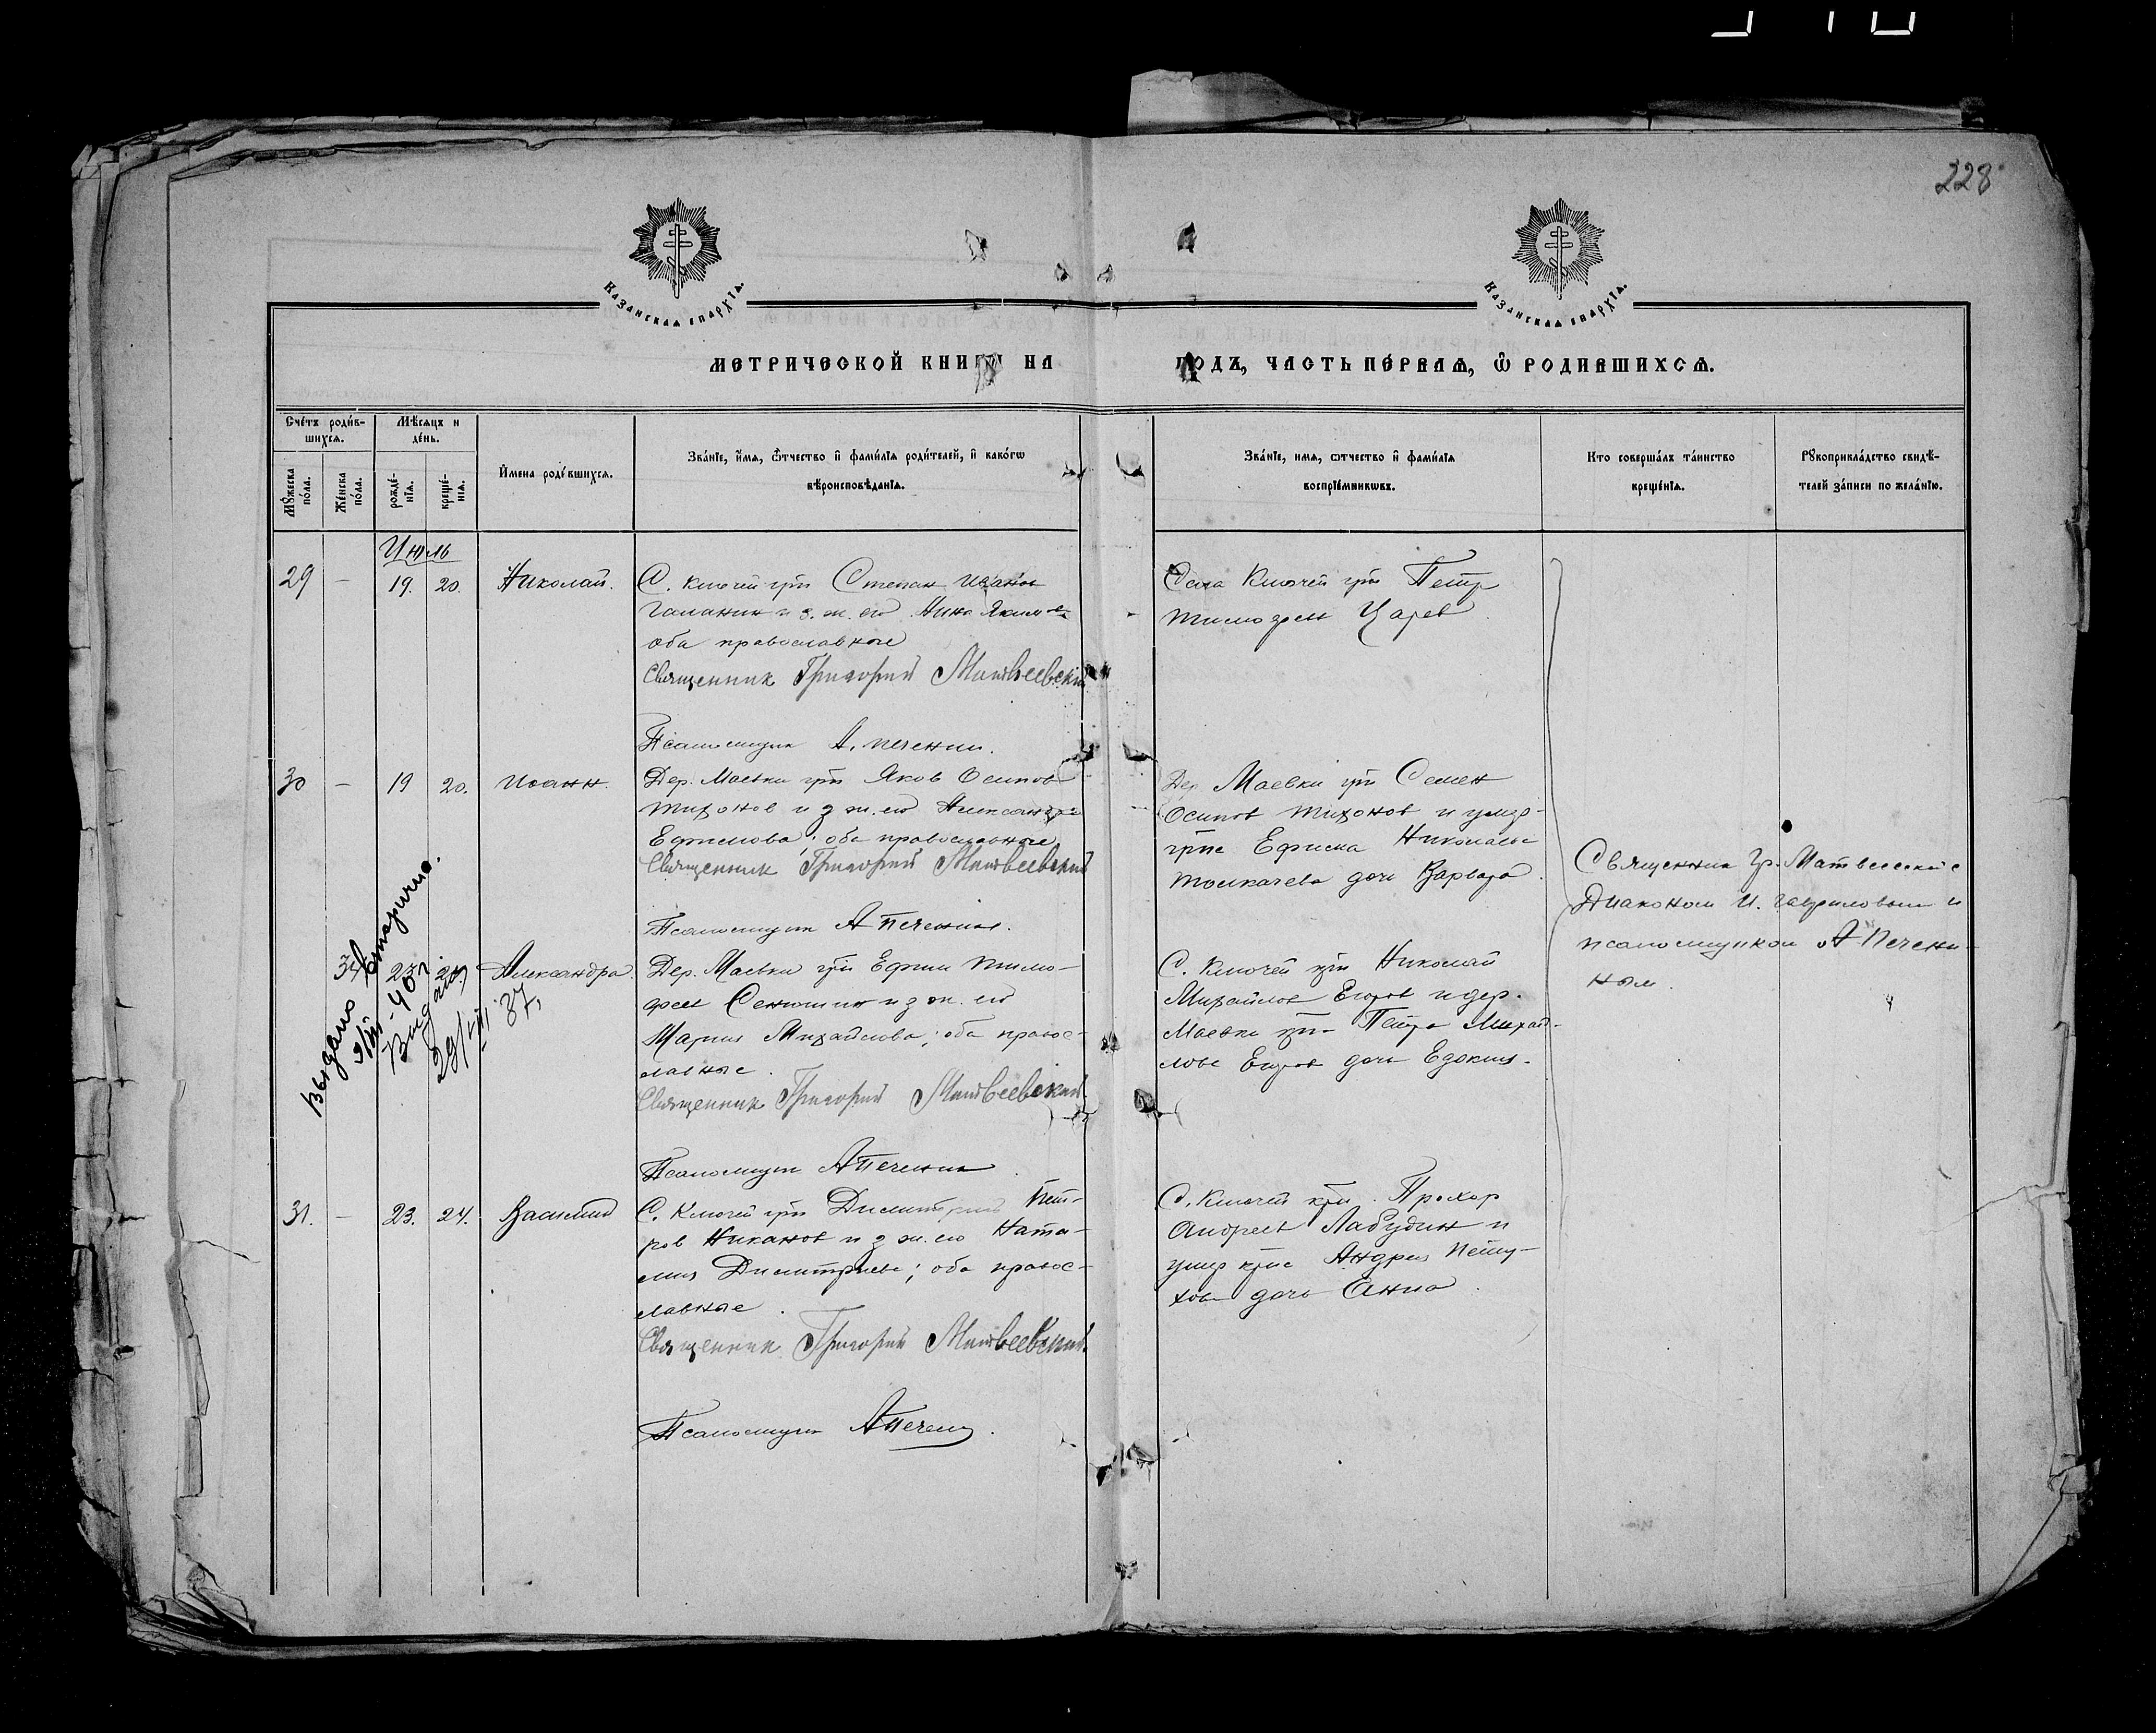 228
Казанская епархїя.
Казанская епархїя.
МЕТРИЧЕСКОЙ КНИГИ НА ГОДЪ, ЧАСТЬ ПЕ́РВАЯ, Ѽ РОДИВШИХСЯ.
Сче́тъ роди́в-
шихся.
Мѣ́сяцъ и
де́нь.
Мꙋ́жеска
по́ла.
Же́нска
по́ла.
рожде́-
нїя.
креще́-
нїя.
И҆мена роди́вшихся.
Зва́нїе, и҆́мя, ѻ҆́тчество и҆ фами́лїя роди́телей, и҆ како́гѡ
вѣроисповѣ́данїя.
Зва́нїе, имя, ѻтчество и҆ фами́лїя
воспрїе́мникѡвъ.
Кто соверша́лъ та́инство
креще́нїя.
Рꙋкоприкла́дство свидѣ́-
телей за́писи по жела́нїю.
Июль
29 - 19. 20. Николай.
С. Ключей кр. Степан Иванов
Галанин и з. ж. его Анна Яким
оба православные
Священник Григорий Матвеевский
Псаломщик А. Печенин.
Села Ключей кр. Петр
Тимофеев Царев
30 - 19 20. Иоанн.
Дер. Маевки кр. Яков Осипов
Тихонов и з. ж. его Александра
Ефимова; оба православные
Священник Григорий Матвеевский
Псаломщик А Печенин.
Дер Маевки кр. Семен
Осипов Тихонов и умер-
Ефима Николаева
Толкачева дочь Варвара.
Выдано
Выдано
29/VII 37.
23. Александра.
Дер. Маевки кр. Ефим Тимо-
феев Сенюшин и з ж. его
Мария Михайлова; оба правос-
лавные.
Священник Григорий Матвеевский
Псаломщик А Печенин
С. Ключей кр. Николай
Михайлов Егоров и дер.
Маевки кр. Петра Михай-
лова Егорова дочь Евдокия.
31. - 23. 24. Василий
С. Ключей кр. Димитрий Пет-
ров Никанов и з ж. его Ната-
лия Димитриева; оба правос-
лавные.
Священник Григорий Матвеевский
Псаломщик А Печенин.
С. Ключей кр. Прохор
Андреев Лабудин и
умер Андрея Пету-
хова дочь Анна.
Священник Гр. Матвеевский с
Диаконом И. Гавриловым и
псаломщиком А Печени-
ным.